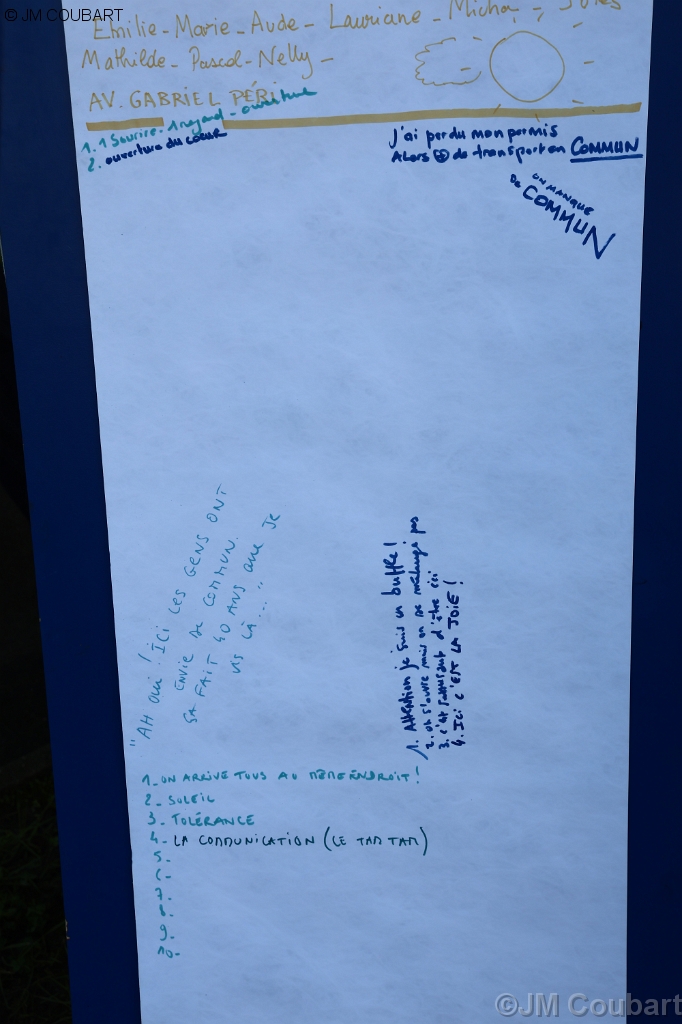 © JM COUBART
Emilie - Marie - Aude - Lauriane - Micha - Jules
Mathilde - Pascal - Nelly -
AV. GABRIEL PÉRI
1. 1 Sourire - 1 regard - ouverture
2. ouverture du coeur
J'ai perdu mon permis
Alors de transport en COMMUN
UN MANQUE
De COMMUN
"AH oui! ICI LES GENS ONT
ENVIE DE COMMUN.
SA FAIT 40 ANS QUE JE
VIS LÀ ... "
1. Attention je suis un buffle!
2. on s'ouvre mais on se mélange pas
3. c'est d'être ici
4. Ici c'EST LA JOIE!
1_ ON ARRIVE TOUS AU MÊME ENDROIT!
2_ SOLEIL
3_ TOLÉRANCE
4_ LA COMMUNICATION (LE TAM TAM)
5_
6_
7_
8_
9_
10_
©JM Coubart